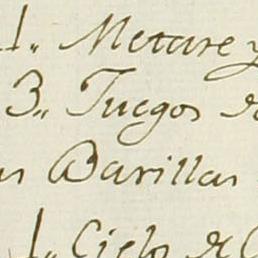 1,, Metare y
3,, Juegos de
Barillas
1,, Cielo de C